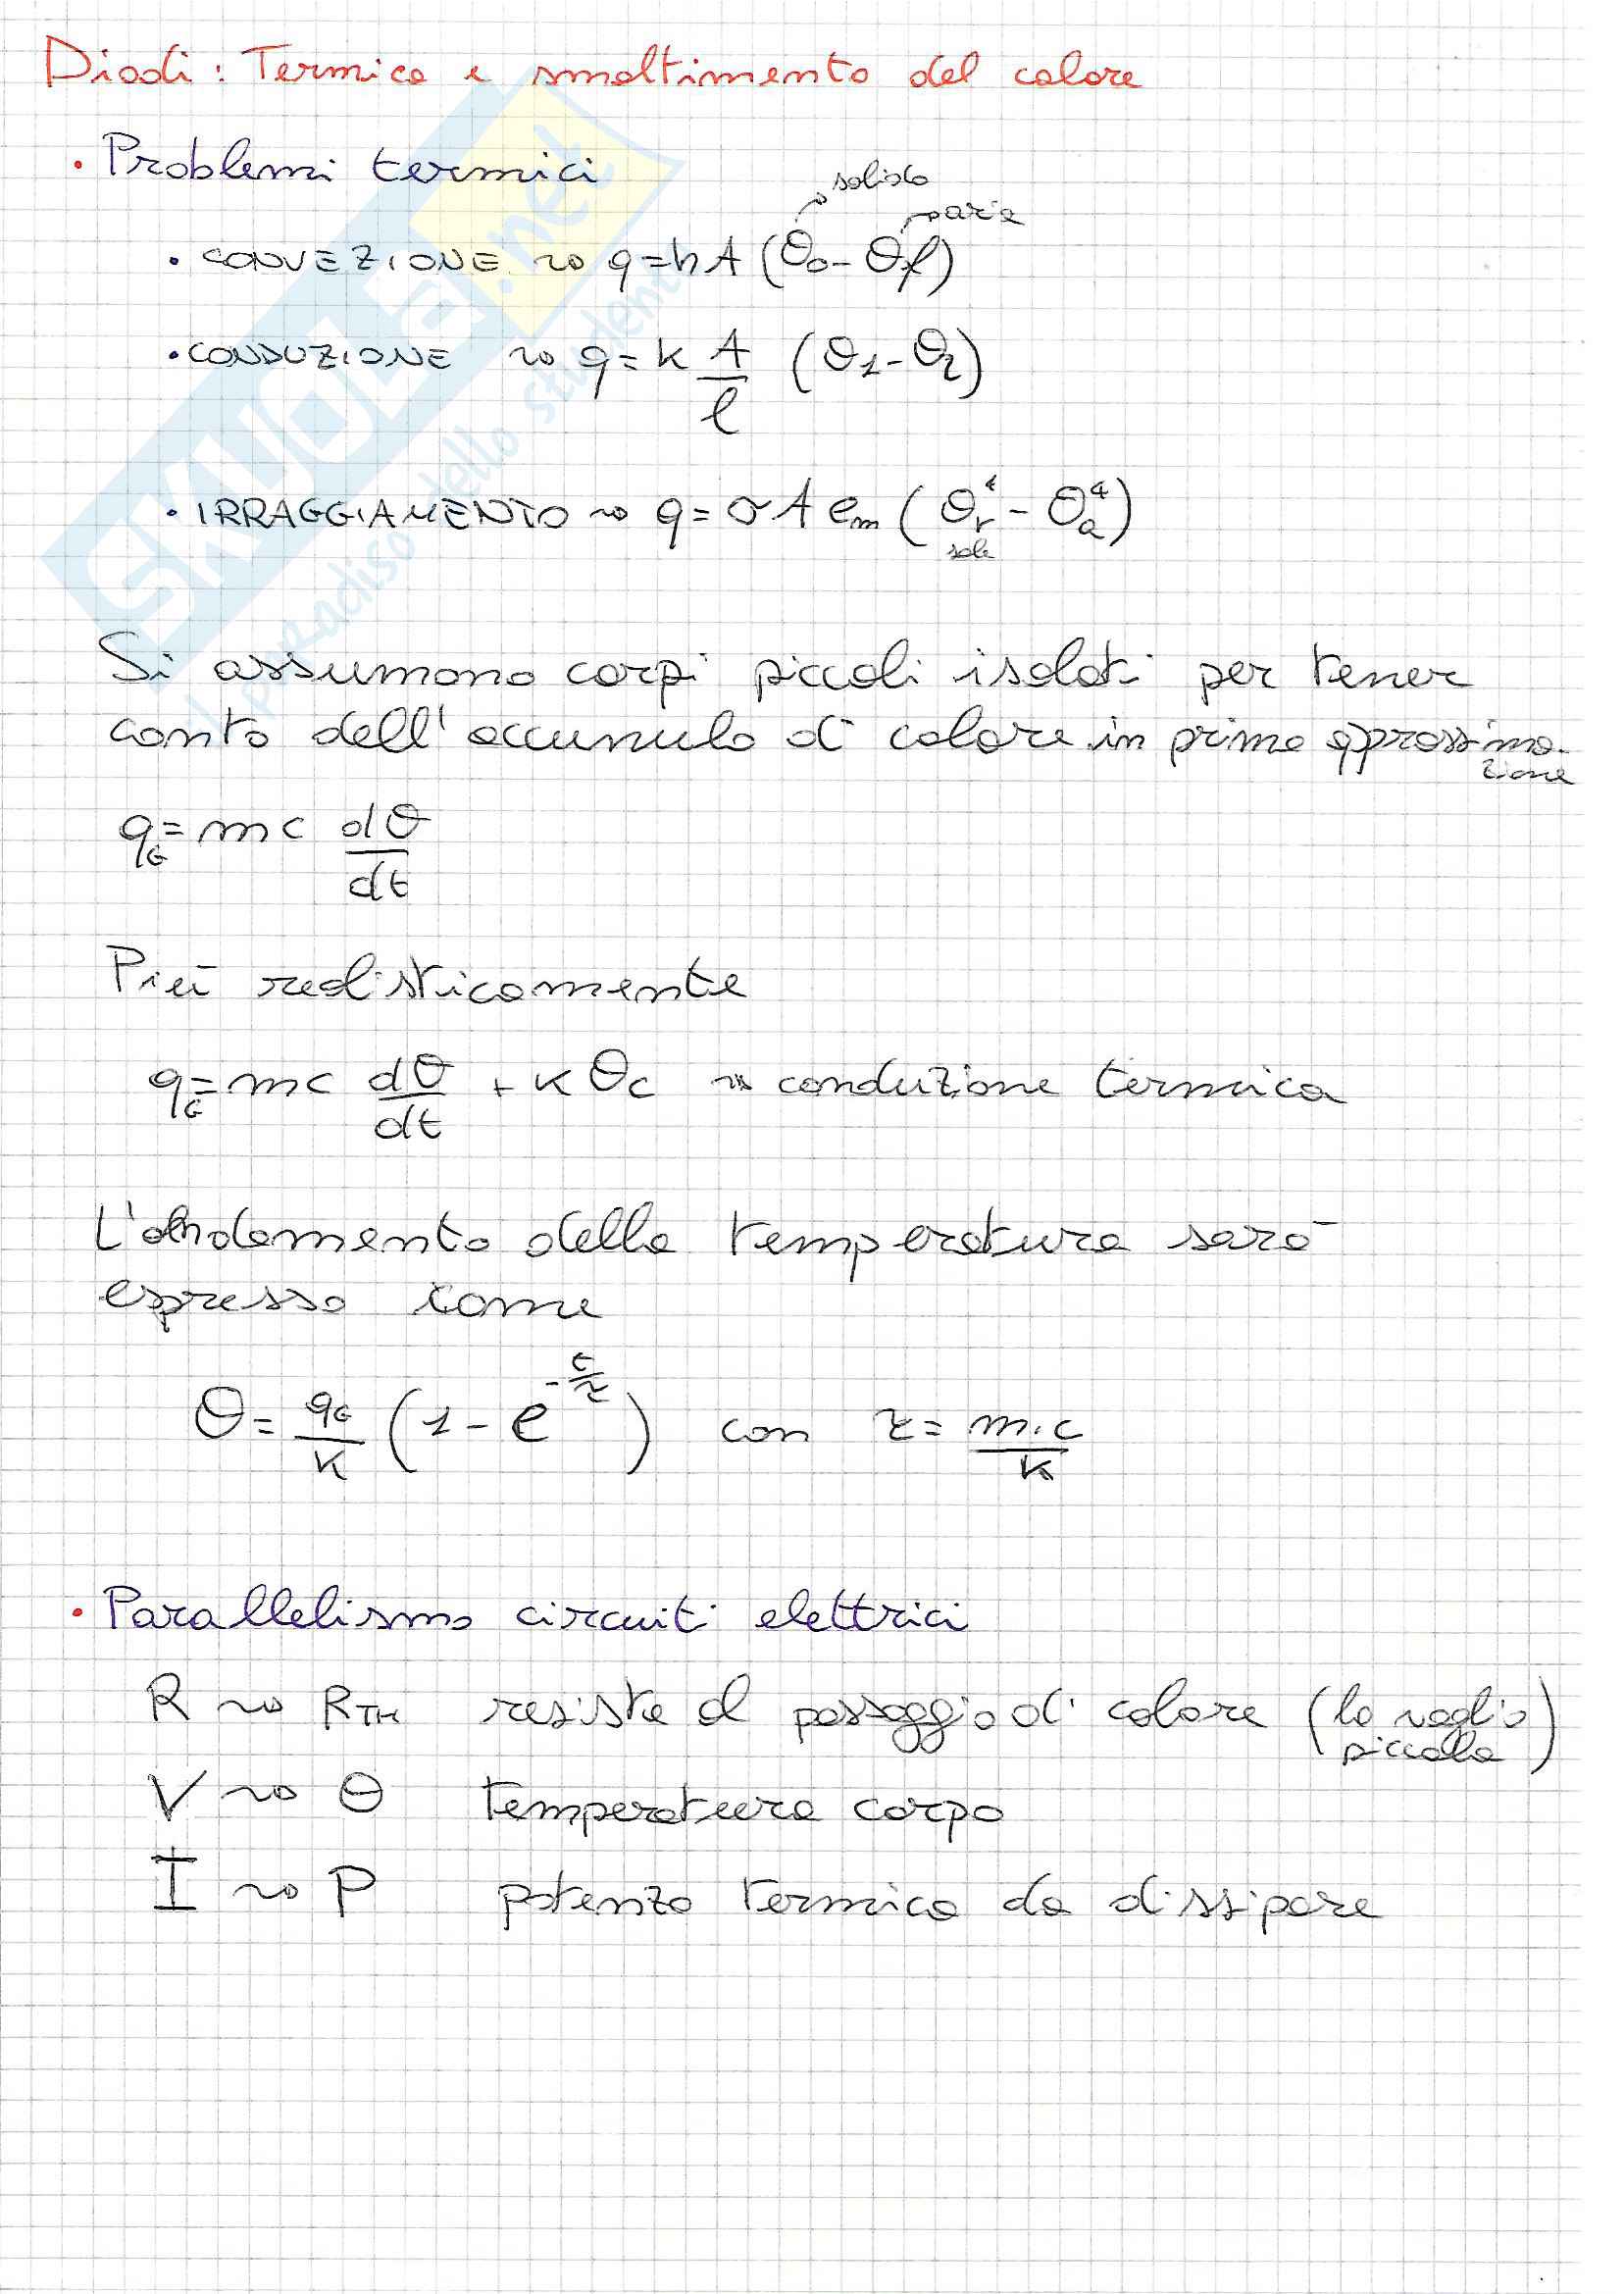 Diodi: Termica e smaltimento del calore
• Problemi termici
solido
aria
• CONVEZIONE ~> q = h A (θo - θf)
• CONDUZIONE ~> q = k A/l (θ1 - θ2)
• IRRAGGIAMENTO ~> q = σ A em (θr⁴ - θa⁴)
sole
Si assumono corpi piccoli isolati per tener
conto dell'accumulo di calore in prima approssima-
zione
qG = mc dθ/dt
Più realisticamente
qG = mc dθ/dt + K θc ~> conduzione termica
L'andamento della temperatura sarà
espresso come
θ = qG/K (1 - e^(-t/τ)) con τ = m·c/K
• Parallelismo circuiti elettrici
R ~> RTH resiste al passaggio di calore (la voglio
piccola)
V ~> θ temperatura corpo
I ~> P potenza termica da dissipare
SKUOLA.net
il paradiso dello studente